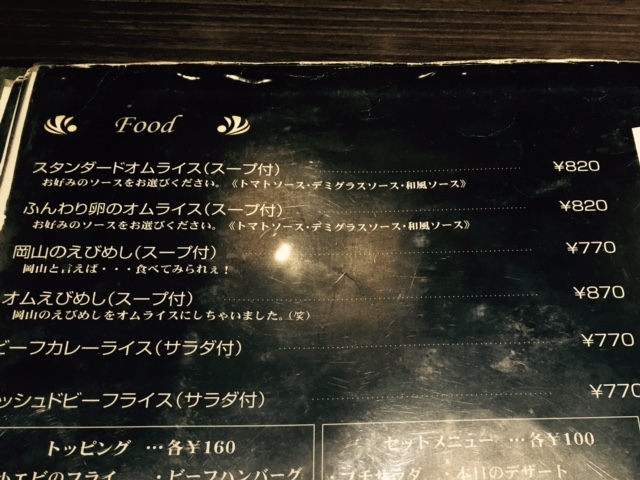 Food
スタンダードオムライス(スープ付) ¥820
お好みのソースをお選びください。《トマトソース・デミグラスソース・和風ソース》
ふんわり卵のオムライス(スープ付) ¥820
お好みのソースをお選びください。《トマトソース・デミグラスソース・和風ソース》
岡山のえびめし(スープ付) ¥770
岡山と言えば・・・食べてみられぇ！
オムえびめし(スープ付) ¥870
岡山のえびめしをオムライスにしちゃいました。(笑)
ビーフカレーライス(サラダ付) ¥770
ッシュドビーフライス(サラダ付) ¥770
トッピング …各¥160
セットメニュー …各¥100
小エビのフライ ・ビーフハンバーグ
・プチサラダ ・本日のデザート